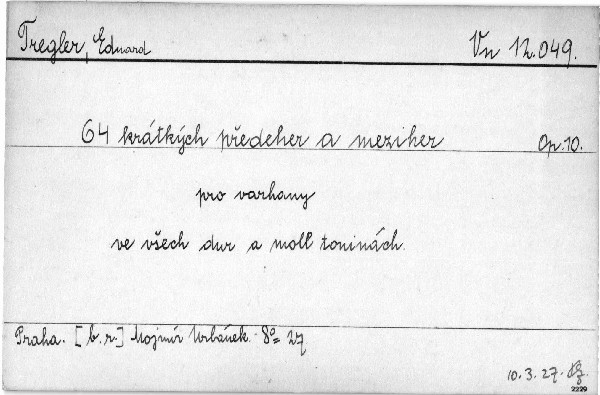 Tregler, Eduard Vn 12.049.
64 krátkých předeher a meziher Op. 10.
pro varhany
ve všech dur a moll toninách.
Praha. [b.r.] Mojmír Urbánek. 8° 27
10.3.27.
2229